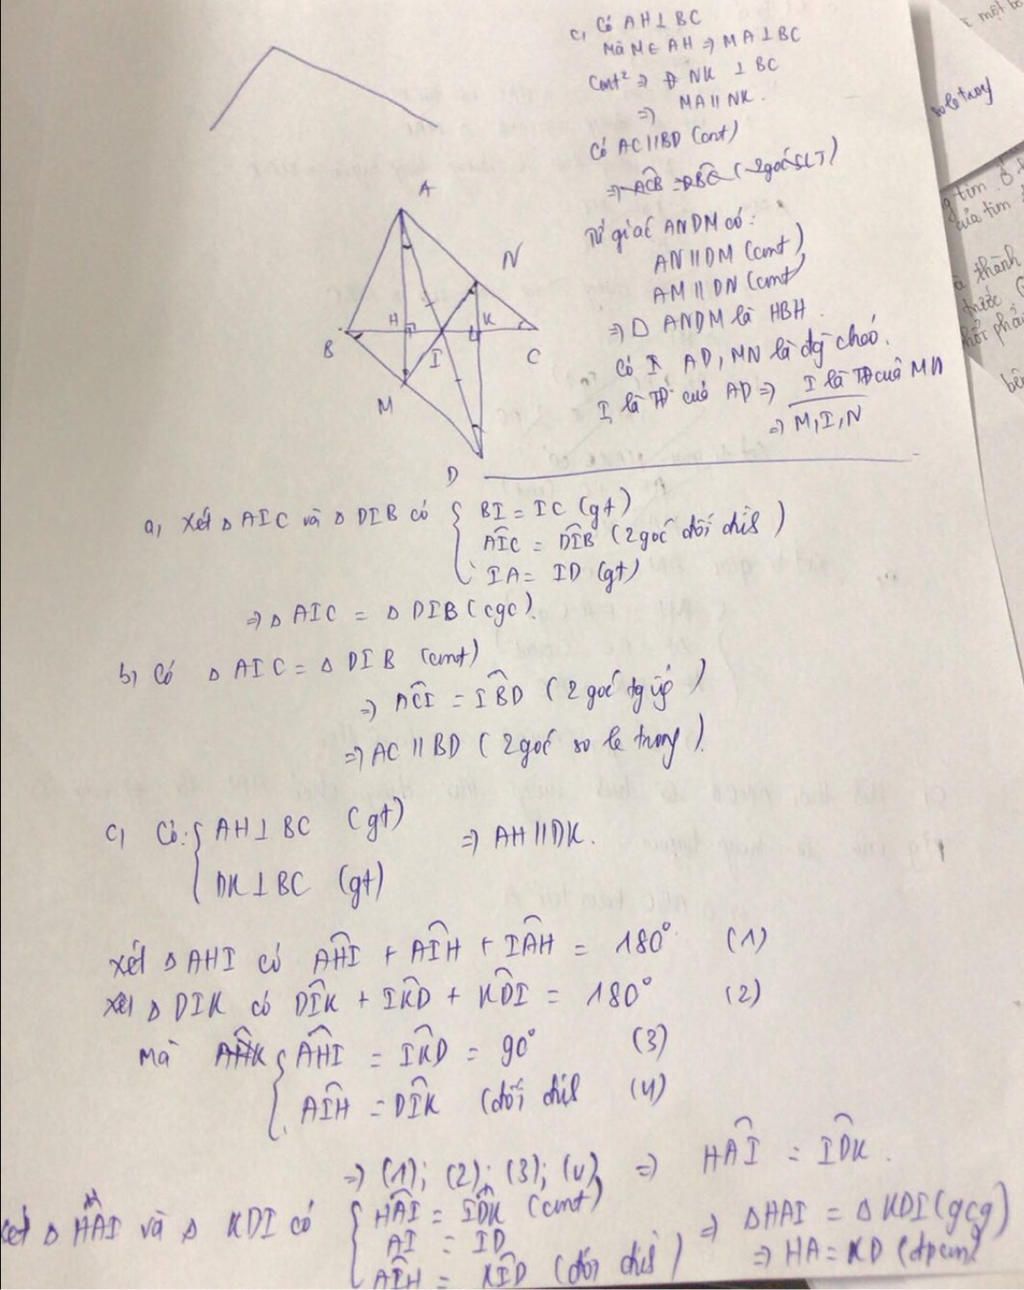 c, Có AH⊥BC
Mà M∈AH ⇒ MA⊥BC
Cmt² ⇒ NK ⊥ BC
⇒ MA∥NK.
Có AC∥BD (cmt)
(2 góc SLT)
Tứ giác ANDM có:
AN∥DM (cmt)
AM∥DN (cmt)
⇒ ANDM là HBH.
Có AD, MN là đg chéo.
I là TĐ của AD ⇒ I là TĐ của MN
⇒ M, I, N
so le trong
A
N
H
K
B
I
C
M
D
a, Xét △AIC và △DIB có { BI = IC (gt)
AIC = DIB (2 góc đối đỉnh)
IA = ID (gt)
⇒ △AIC = △DIB (cgc).
b, Có △AIC = △DIB (cmt)
⇒ ACI = IBD (2 góc tg ứg)
⇒ AC∥BD (2 góc so le trong).
c, Có: { AH⊥BC (gt) ⇒ AH∥DK.
DK⊥BC (gt)
Xét △AHI có AHI + AIH + IAH = 180° (1)
Xét △DIK có DIK + IKD + KDI = 180° (2)
Mà { AHI = IKD = 90° (3)
AIH = DIK (đối đỉnh (4)
⇒ (1); (2); (3); (4) ⇒ HAI = IDK.
Xét △HAI và △KDI có { HAI = IDK (cmt) ⇒ △HAI = △KDI (gcg)
AI = ID
AIH = KID (đối đỉnh) ⇒ HA = KD (đpcm)